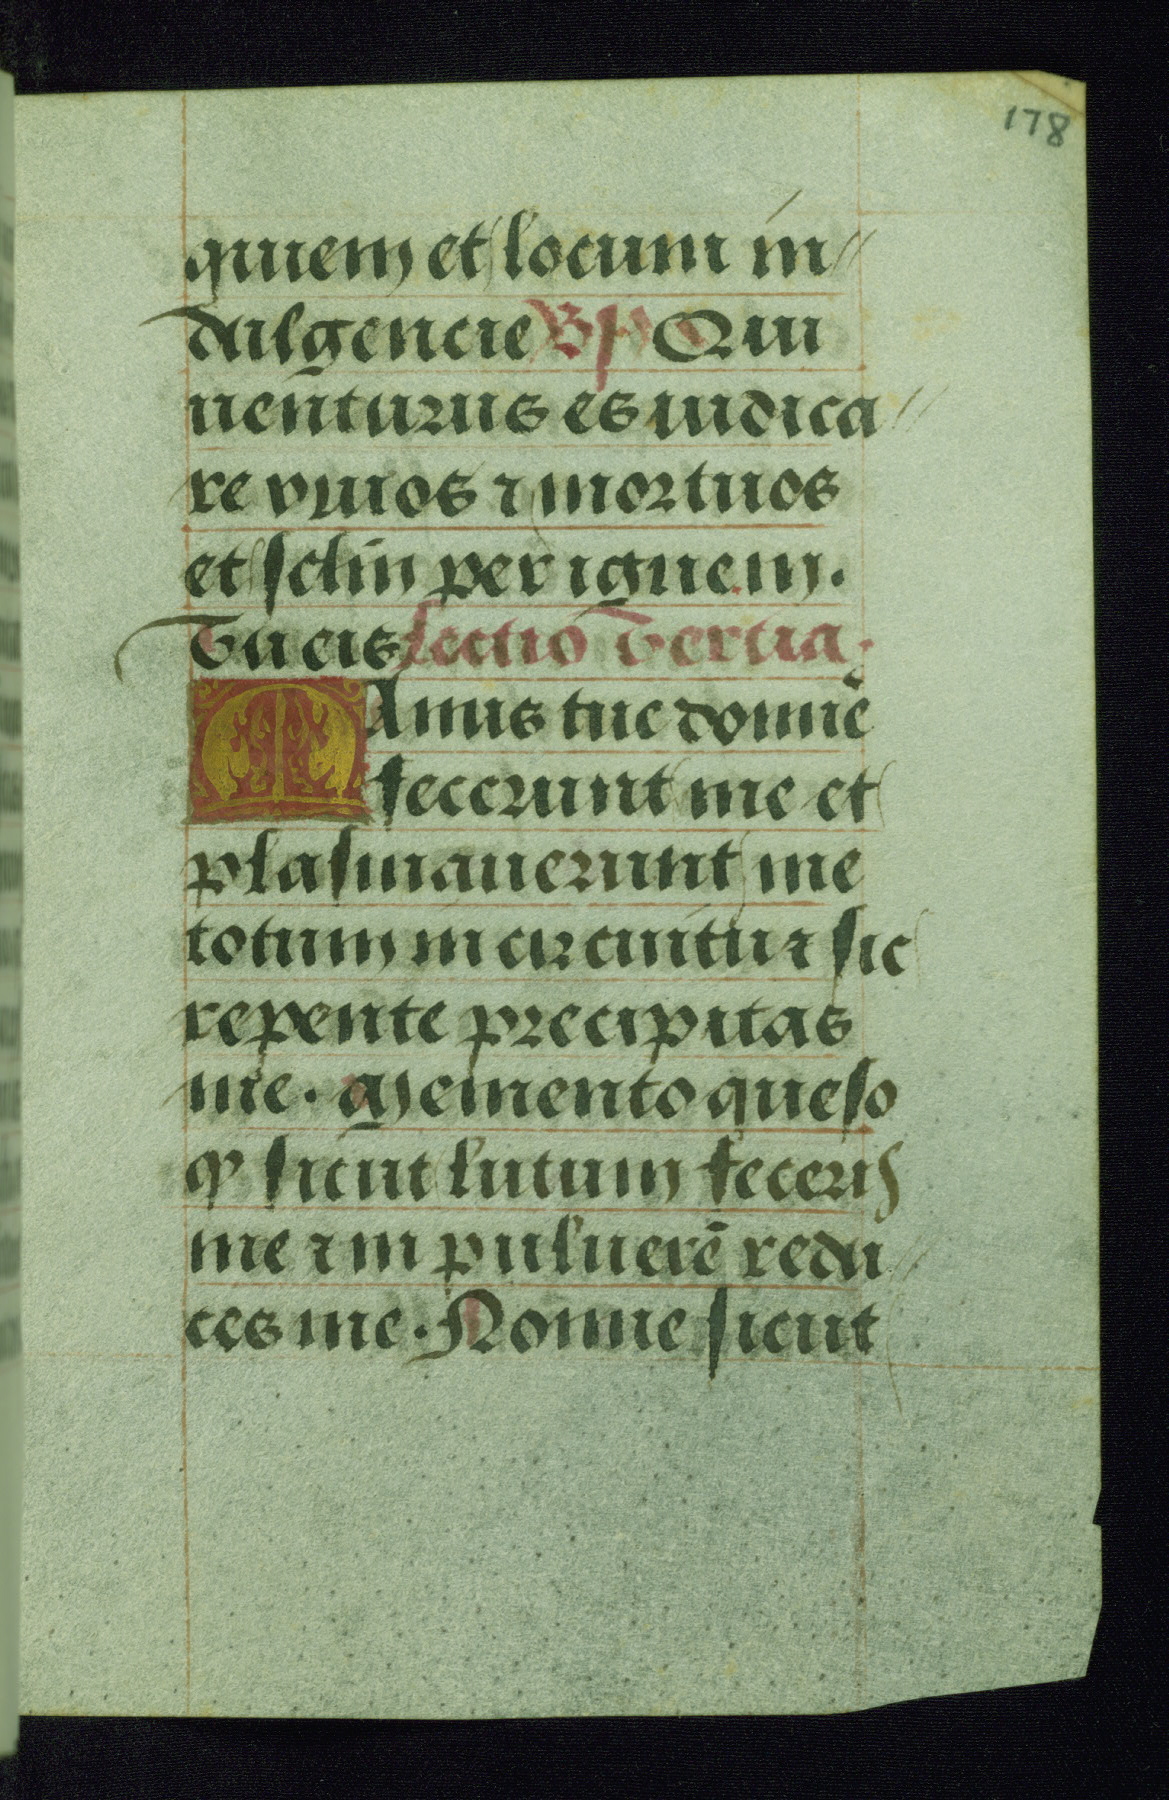 178
quiem et locum in//
dulgencie Vs Qui
uenturus es iudica//
re viuos ⁊ mortuos
et sclm̄ per ignem.
Tu eis Lectio Tertia.
MAnus tue domnē
fecerunt me et
plasmauerunt me
totum in circuitu ⁊ sic
repente precipitas
me. Memento queso
qͥ sicut lutum feceris
me ⁊ in puluerē redu//
ces me. Nonne sicut